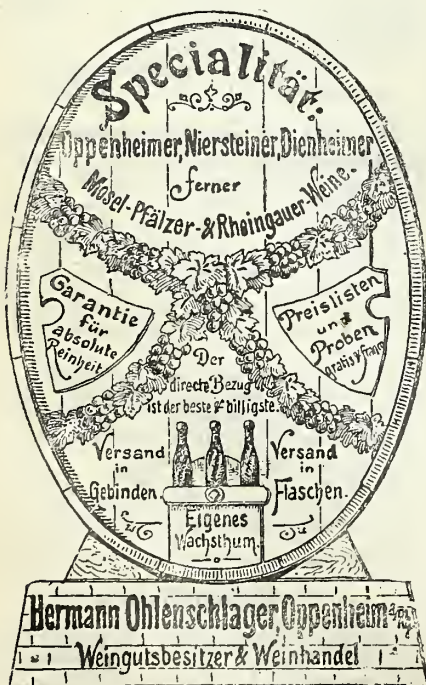 Specialität:
Oppenheimer, Niersteiner, Dienheimer
ferner
Mosel-Pfälzer- & Rheingauer-Weine.
Garantie
für
absolute
Reinheit
Preislisten
und
Proben
gratis & franco
Der
directe Bezug
ist der beste & billigste.
Versand
in
Gebinden.
Versand
in
Flaschen.
Eigenes
Wachsthum.
Hermann Ohlenschlager, Oppenheim a/Rh.
Weingutsbesitzer & Weinhandel